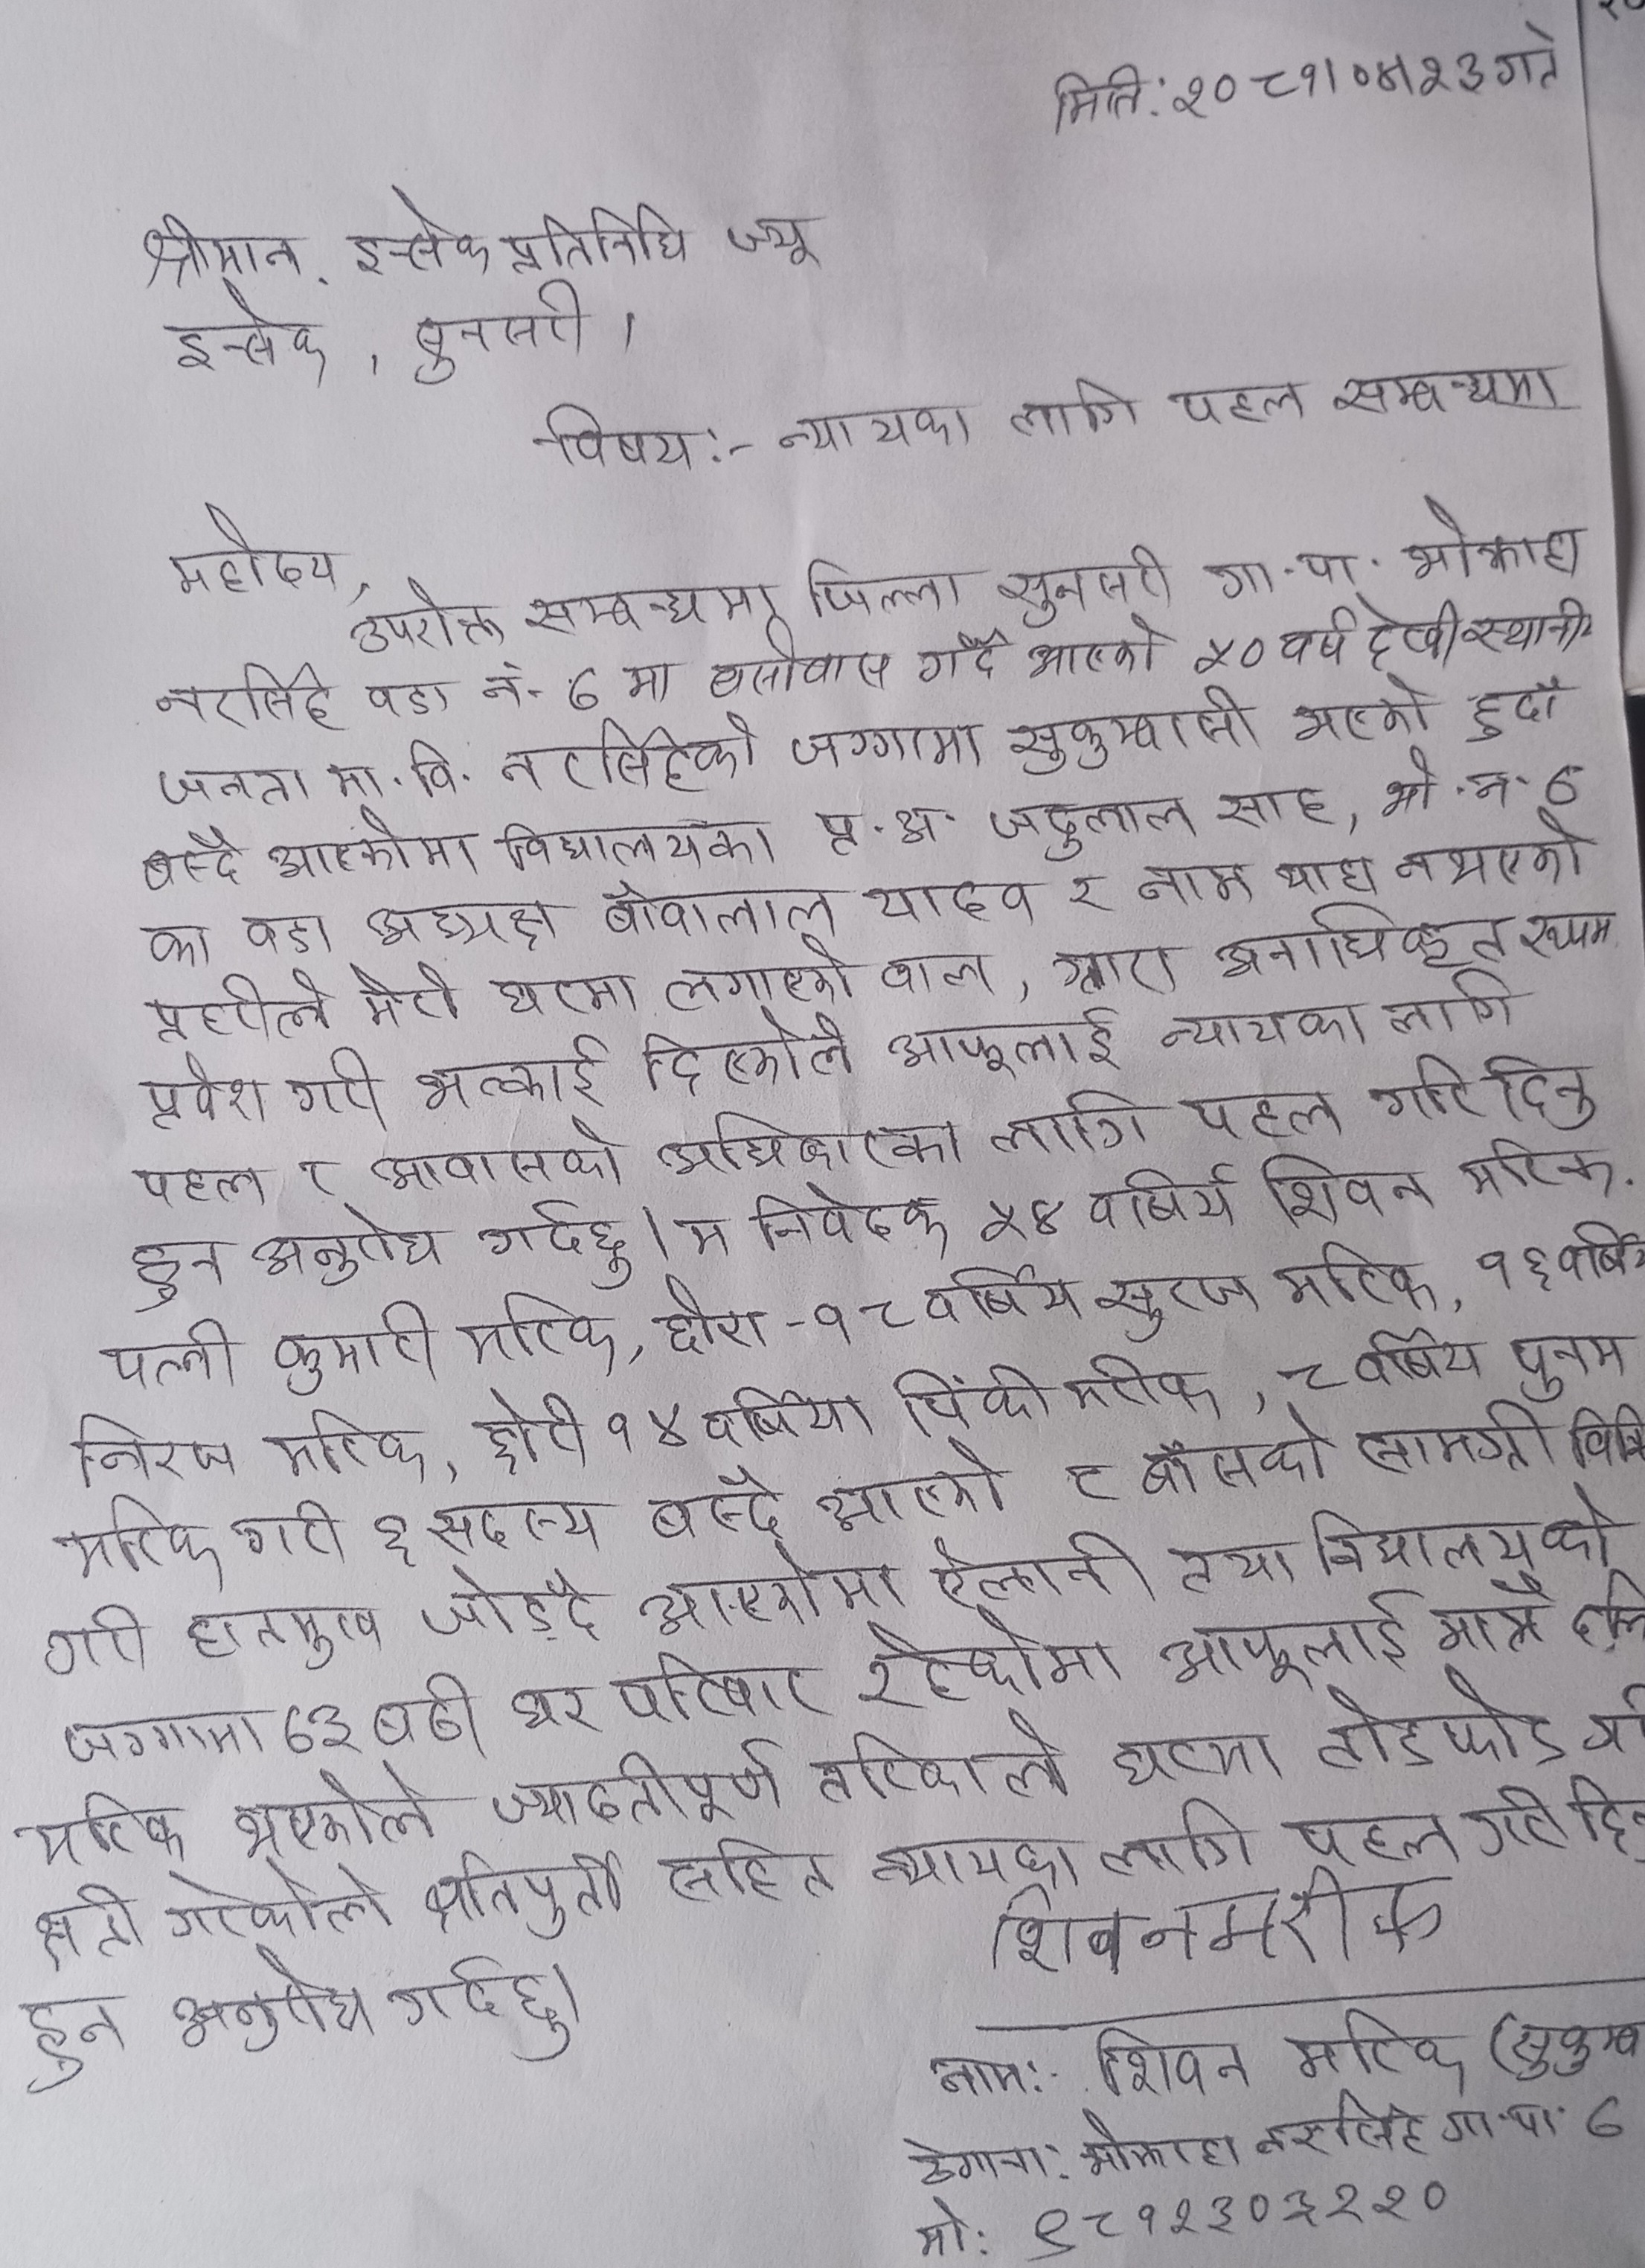 मिति: २०८१।०४।२३ गते
श्रीमान. इन्सेक प्रतिनिधि ज्यू
इन्सेक, सुनसरी।
विषय:- न्यायका लागि पहल सम्बन्धमा
महोदय,
उपरोक्त सम्बन्धमा जिल्ला सुनसरी गा.पा. भोक्राहा
नरसिंह वडा नं- ७ मा बसोवास गर्दै आएको ५० वर्ष देखी स्थानीय
जनता मा.वि. नरसिंहको जग्गामा सुकुम्वासी भएको हुदाँ
बस्दै आएकोमा विद्यालयका प्र.अ. जदुलाल साह, भो.न.७
का वडा अध्यक्ष बौवालाल यादव र नाम थाह नभएको
प्रहरीले मेरो घरमा लगाएको वाल, अनाधिकृत रुपम
प्रवेश गरी भत्काई दिएकोले आफूलाई न्यायका लागि
पहल र आवासको अधिकारका लागि पहल गरि दिनु
हुन अनुरोध गर्दछु। म निवेदक ५४ वर्षिय शिवन मरिक.
पत्नी कुमारी मरिक, छोरा-१८ वर्षिय सुरज मरिक, १६ वर्षिय
निरज मरिक, छोरी १४ वर्षिया पिंकी मरीक, ८ वर्षिय पुनम
मरिक गरी ६ सदस्य बस्दै आएको र बाँसको सामग्री विक्रि
गरी हातमुख जोड्दै आएकोमा ऐलानी तथा विद्यालयको
जग्गामा ७३ बढी घर परिवार रहेकोमा आफूलाई मात्रै दलि
मरिक भएकोले ज्यादतीपूर्ण तरिकाले घरमा तोडफोड गरी
क्षती गरेकोले क्षतिपुर्ती सहित न्यायका लागि पहल गरी दिनु
हुन अनुरोध गर्दछु।
शिवन मरीक
नाम:- शिवन मरिक (सुकुम्व
ठेगाना: भोक्राहा नरसिंह गा.पा. ७
मो: ९८१२३०३२२०